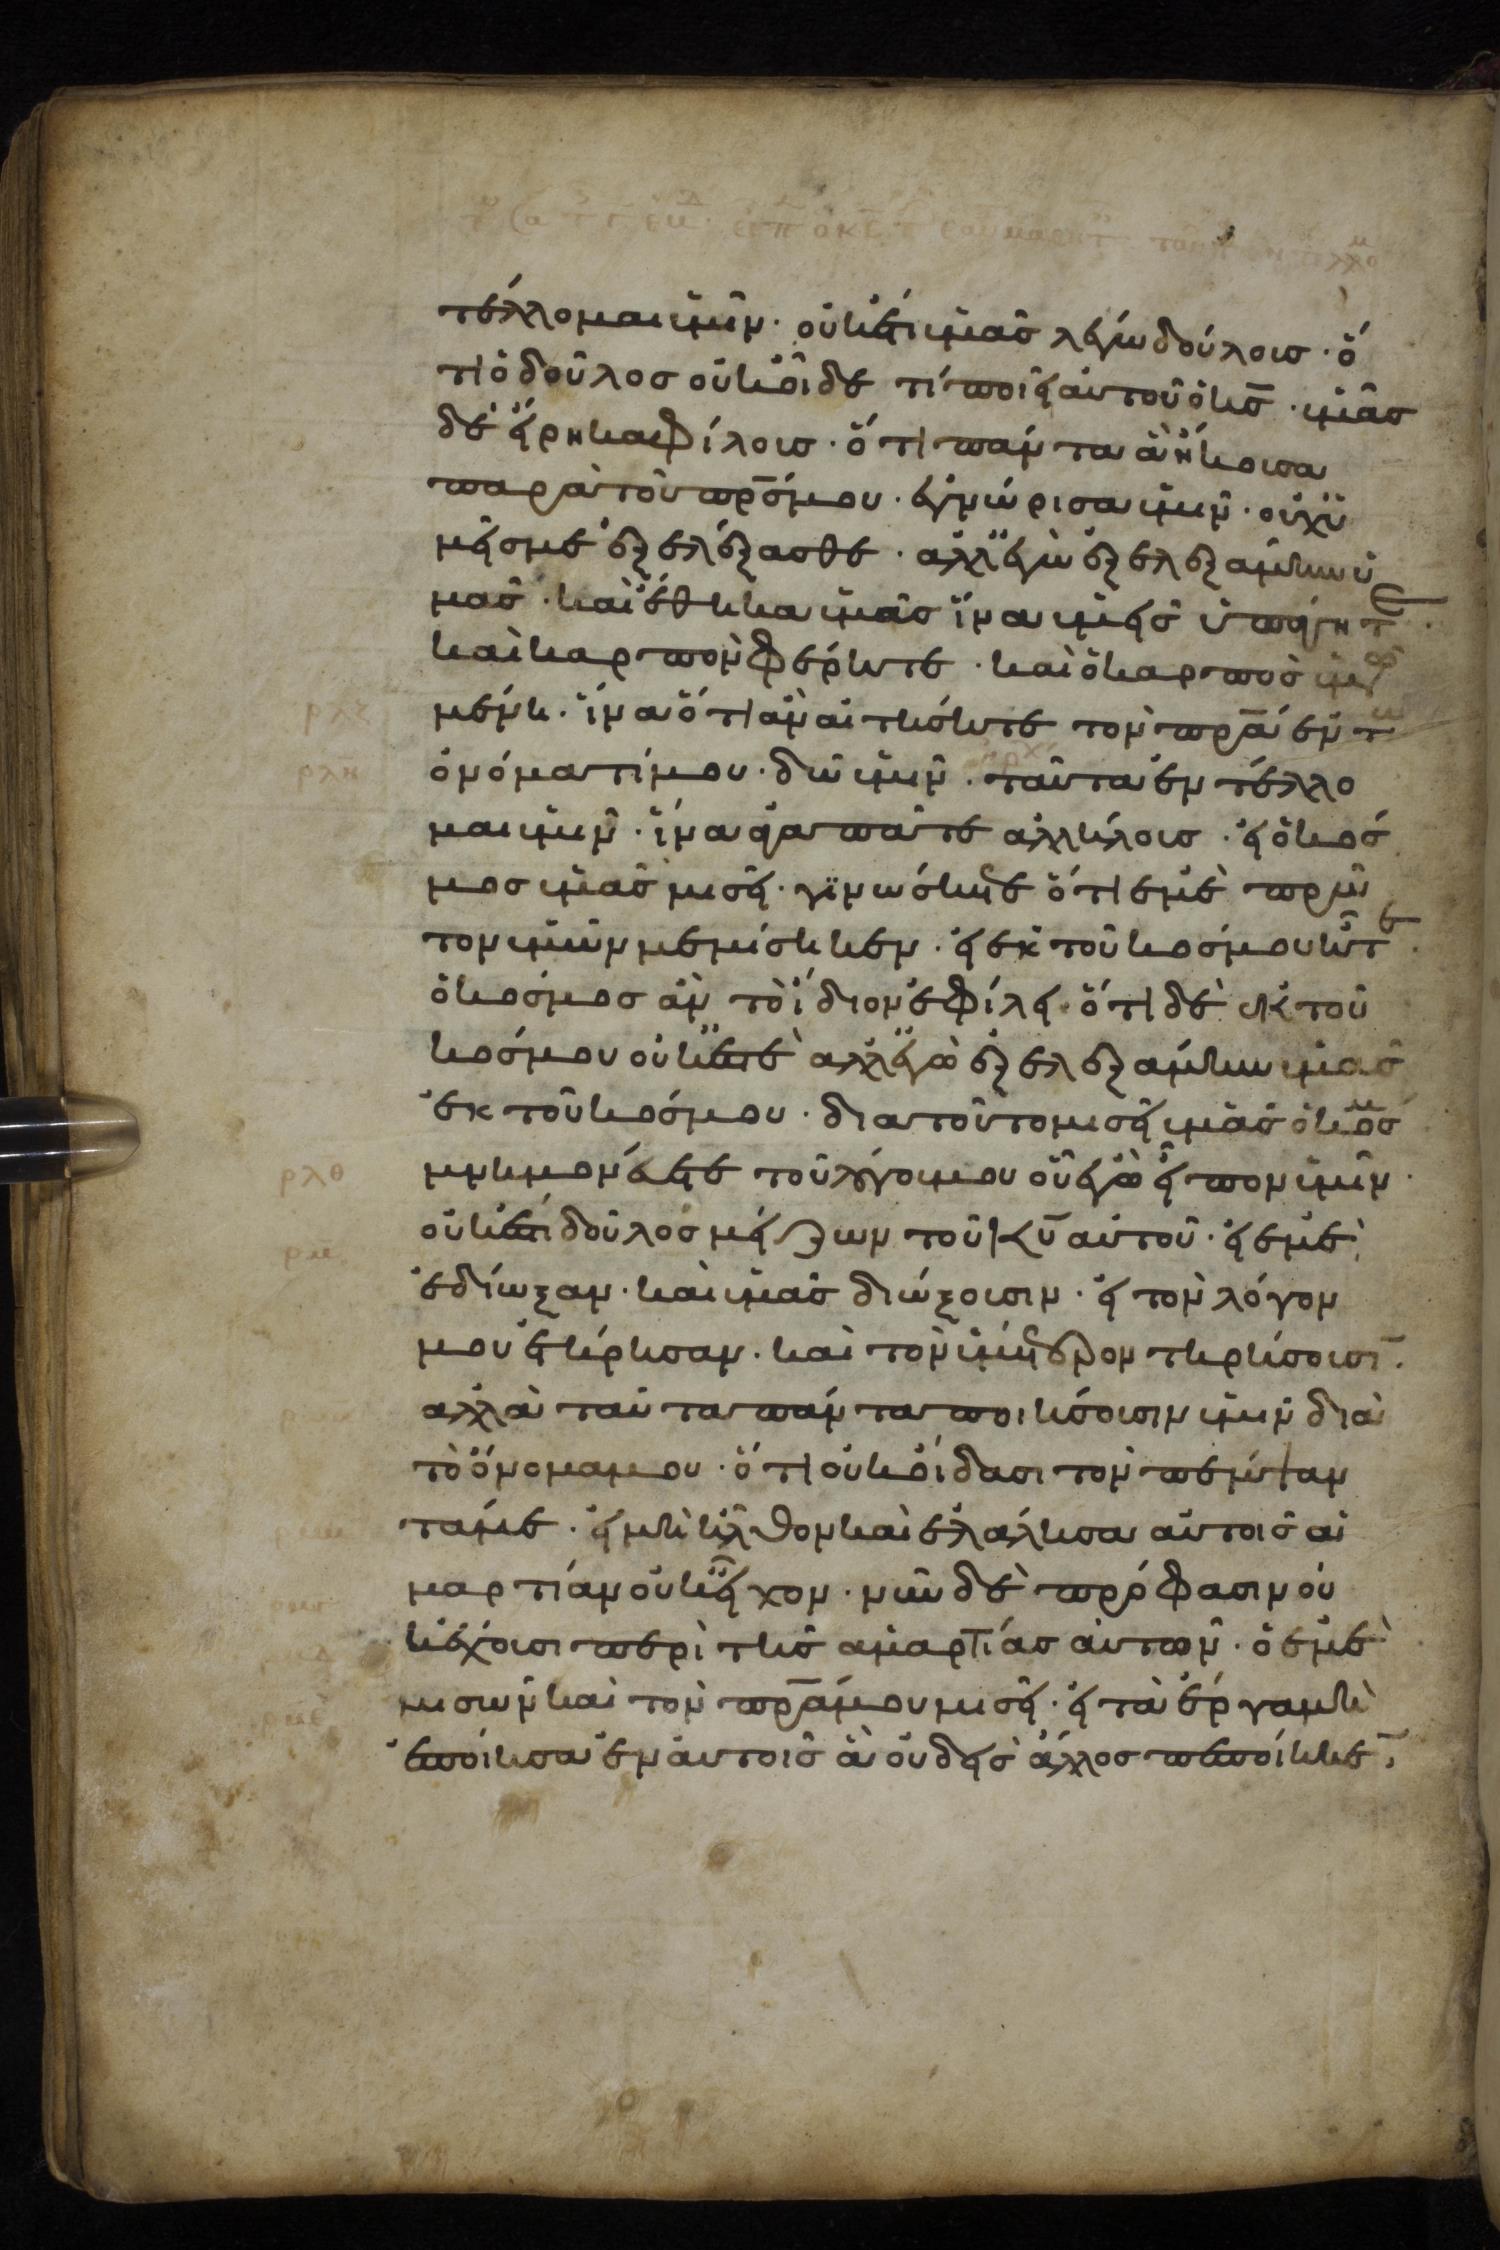 τέλλομαι ὑμῖν· οὐκέτι ὑμᾶς λέγω δούλους· ὅ
τι ὁ δοῦλος οὐκ οἶδε τί ποιεῖ αὐτοῦ ὁ κ̅ς̅· ὑμᾶς
δὲ εἴρηκα φίλους· ὅτι πάντα ἃ ἤκουσα
παρὰ τοῦ π̅ρ̅ς̅ μου· ἐγνώρισα ὑμῖν· οὐχ ὑ
μεῖς με ἐξελέξασθε· ἀλλ' ἐγὼ ἐξελεξάμην ὑ
μᾶς· καὶ ἔθηκα ὑμᾶς ἵνα ὑμεῖς ὑπάγητε·
καὶ καρπὸν φέρητε· καὶ ὁ καρπὸς ὑμῶν
μένη· ἵνα ὅτι ἂν αἰτήσητε τὸν π̅ρ̅α̅ ἐν τῶ
ὀνόματί μου· δῶ ὑμῖν· ταῦτα ἐντέλλο
μαι ὑμῖν· ἵνα ἀγαπᾶτε ἀλλήλους· εἰ ὁ κόσ
μος ὑμᾶς μισεῖ· γινώσκετε ὅτι ἐμὲ πρῶ
τον ὑμῶν μεμίσηκεν· εἰ ἐκ τοῦ κόσμου ἦτε·
ὁ κόσμος ἂν τὸ ἴδιον ἐφίλει· ὅτι δὲ ἐκ τοῦ
κόσμου οὐκ ἐστὲ ἀλλ' ἐγὼ ἐξελεξάμην ὑμᾶς
ἐκ τοῦ κόσμου· διατοῦτο μισεῖ ὑμᾶς ὁ κόσμος
ρλθ μνημονεύετε τοῦ λόγου μου οὗ ἐγὼ εἶπον ὑμῖν·
ρμ οὐκ ἔστι δοῦλος μείζων τοῦ κ̅υ̅ αὐτοῦ· εἰ ἐμὲ
ἐδίωξαν· καὶ ὑμᾶς διώξουσιν· εἰ τὸν λόγον
μου ἐτήρησαν· καὶ τὸν ὑμέτερον τηρήσουσι̅·
ἀλλὰ ταῦτα πάντα ποιήσουσιν ὑμῖν διὰ
τὸ ὄνομά μου· ὅτι οὐκ οἴδασι τὸν πέμψαν
τά με· εἰ μὴ ἦλθον καὶ ἐλάλησα αὐτοῖς ἁ
μαρτίαν οὐκ εἶχον· νῦν δὲ πρόφασιν οὐ
κ ἔχουσι περὶ τῆς ἁμαρτίας αὐτῶν· ὁ ἐμὲ
μισῶν καὶ τὸν π̅ρ̅α̅ μου μισεῖ· εἰ τὰ ἔργα μὴ
ἐποίησα ἐν αὐτοῖς ἃ οὐδεὶς ἄλλος πεποίηκε̅·